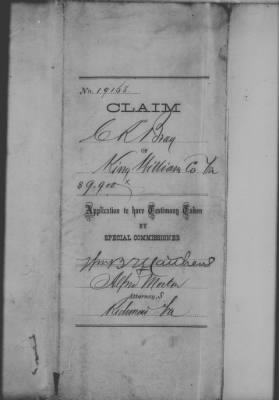 No. 19165
CLAIM
C R Bray
OF
King William Co. Va
$9,900
Application to have Testimony Taken
BY
SPECIAL COMMISSIONER
Wm B Matthews
Alfred Morton
Attorney, S
Richmond Va